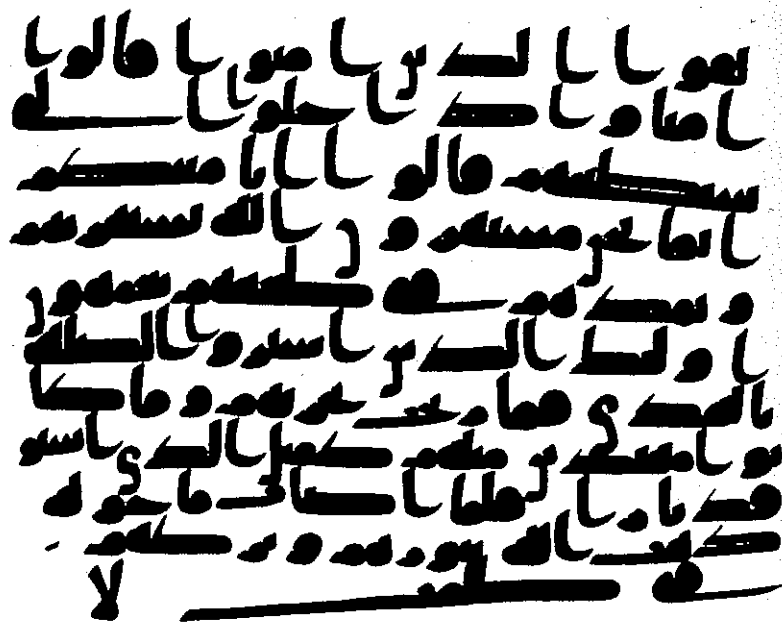 لقوا الذين امنوا قالوا
امنا واذا خلوا الى
شيطينهم قالوا انا معكم
انما نحن مستهزون الله يستهزى بهم
و يمدهم فى طغينهم يعمهون
اولئك الذين اشتروا الضلله
بالهدى فما ربحت تجرتهم وما كا
نوا مهتدين مثلهم كمثل الذى استو
قد نارا فلما اضات ما حوله
ذهب الله بنورهم وتركهم
فى ظلمت لا